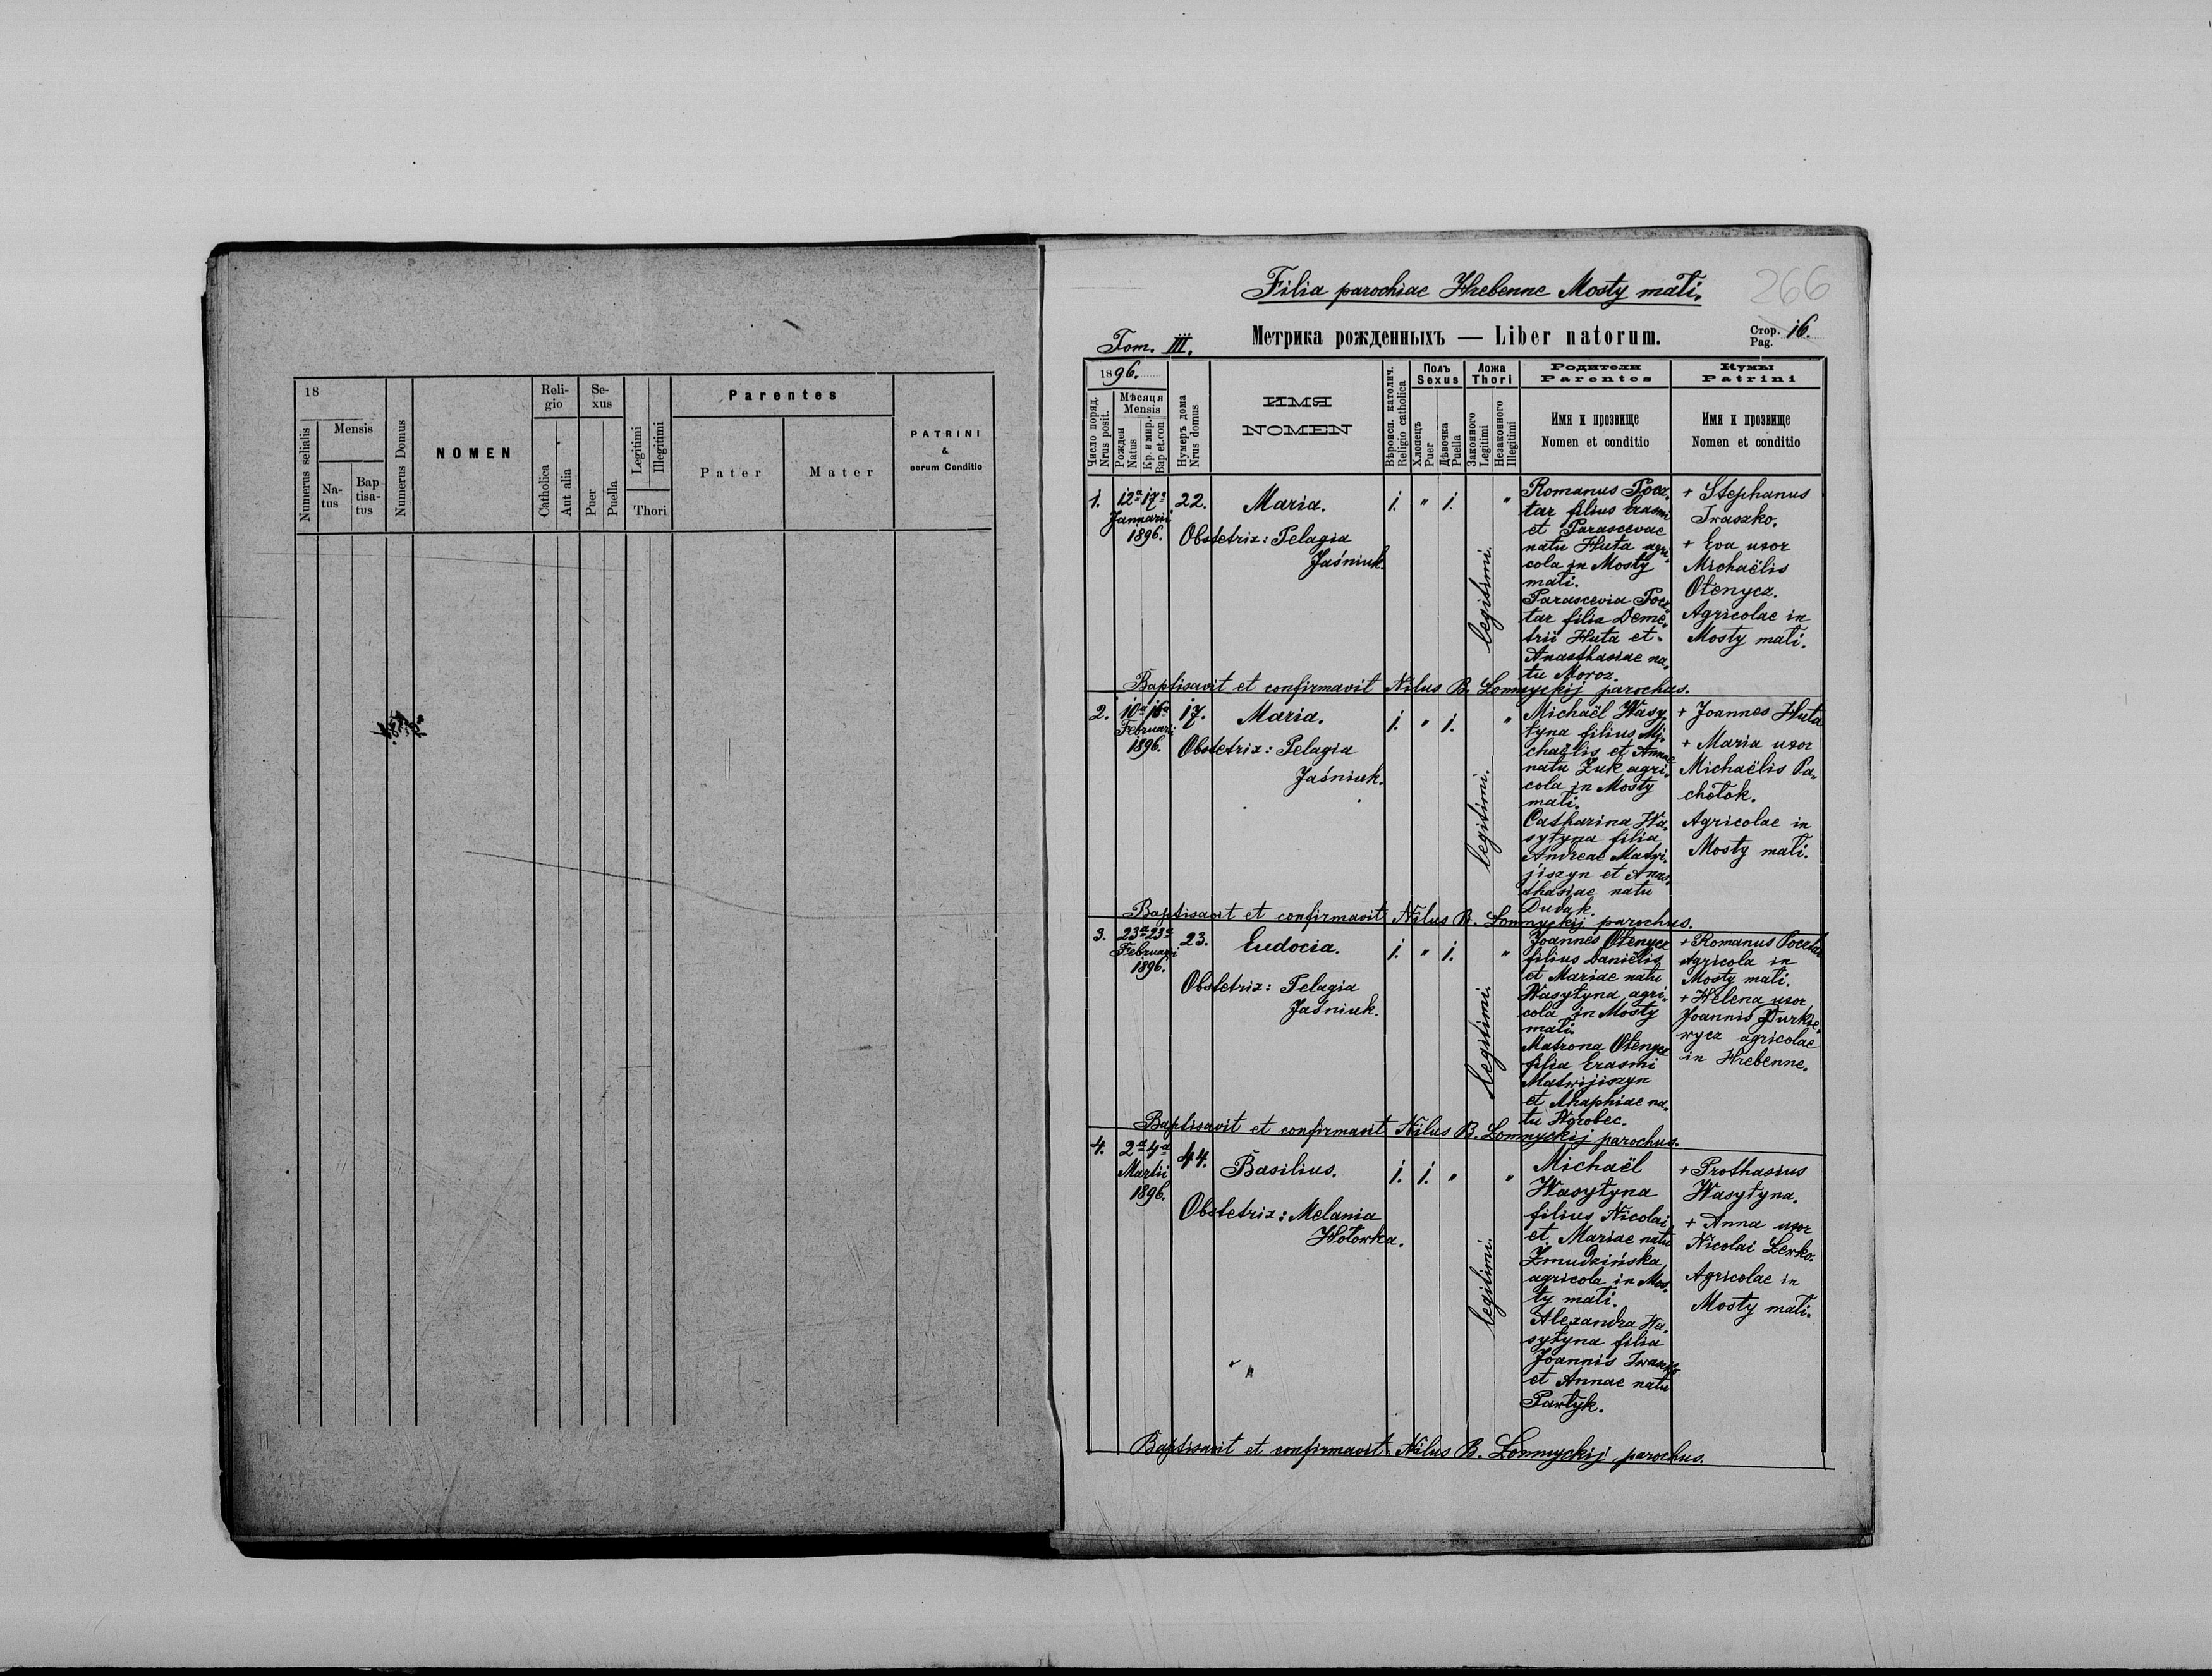 18
Numerus selialis
Mensis
Na-
tus
Bap
tisa-
tus
Numerus Domus
NOMEN
Reli-
gio
Catholica
Aut alia
Se-
xus
Puer
Puella
Legitimi
Illegitimi
Thori
Parentes
Pater
Mater
PATRINI
&
eorum Conditio
Filia parochiae Hrebenne Mosty małi.
266
Tom. III.
Метрика рожденныхъ — Liber natorum.
Стор.
Pag. 16.
1896.
Число поряд.
Nrus posit.
Мѣсяця
Mensis
Рожден
Natus
Кр. и мир.
Bap et.con
Нумеръ дома
Nrus domus
ИМЯ
NOMEN
Вѣроисп. католич.
Religio catholica
Полъ
Sexus
Хлопецъ
Puer
Дѣвочка
Puella
Ложа
Thori
Законного
Legitimi
Незаконного
Illegitimi
Родители
Parentes
Имя и прозвище
Nomen et conditio
Кумы
Patrini
Имя и прозвище
Nomen et conditio
1. 12a 17a 22. Maria. 1. " 1. "
Januarii
1896.
Obstetrix: Pelagia
Jaśniuk.
legitimi.
Romanus Pocz,
tar filius Erasmi
et Parascevae
natu Huta agri,
cola in Mosty
małi.
Parascevia Pocz,
tar filia Deme,
trii Huta et
Anasthasiae na,
tu Moroz.
+ Stephanus
Iwaszko.
+ Eva uxor
Michaëlis
Ołenycz.
Agricolae in
Mosty małi.
Baptisavit et confirmavit Nilus B. Łomnyckij parochus.
2. 10a 16a 17. Maria. 1. " 1. "
Februarii
1896.
Obstetrix: Pelagia
Jaśniuk.
legitimi.
Michaël Wasy,
łyna filius Mi,
chaëlis et Annae
natu Żuk agri,
cola in Mosty
małi.
Catharina Wa,
syłyna filia
Andreae Matwi,
jiszyn et Anas,
thasiae natu
Dudak.
+ Joannes Huta
+ Maria uxor
Michaëlis Pa,
chołok.
Agricolae in
Mosty małi.
Baptisavit et confirmavit Nilus B. Łomnyckij parochus.
3. 23a 23a 23. Eudocia. 1. " 1. "
Februarii
1896.
Obstetrix: Pelagia
Jaśniuk.
legitimi.
Joannes Ołenycz
filius Daniëlis
et Mariae natu
Wasyłyna agri,
cola in Mosty
małi.
Matrona Ołenycz
filia Erasmi
Matwijiszyn
et Ahaphiae na,
tu Horobec.
+ Romanus Pocztar
agricola in
Mosty małi.
+ Helena uxor
Joannis Jurkie,
wycz agricolae
in Hrebenne.
Baptisavit et confirmavit Nilus B. Łomnyckij parochus.
4. 2a 4a 44. Basilius. 1. 1. " "
Martii
1896.
Obstetrix: Melania
Hołowka.
legitimi.
Michaël
Wasyłyna
filius Nicolai
et Mariae natu
Żmudzińska
agricola in Mos,
ty małi.
Alexandra Wa,
syłyna filia
Joannis Iwaszko
et Annae natu
Pawłyk.
+ Prothasius
Wasyłyna.
+ Anna uxor
Nicolai Lewko.
Agricolae in
Mosty małi.
Baptisavit et confirmavit Nilus B. Łomnyckij parochus.